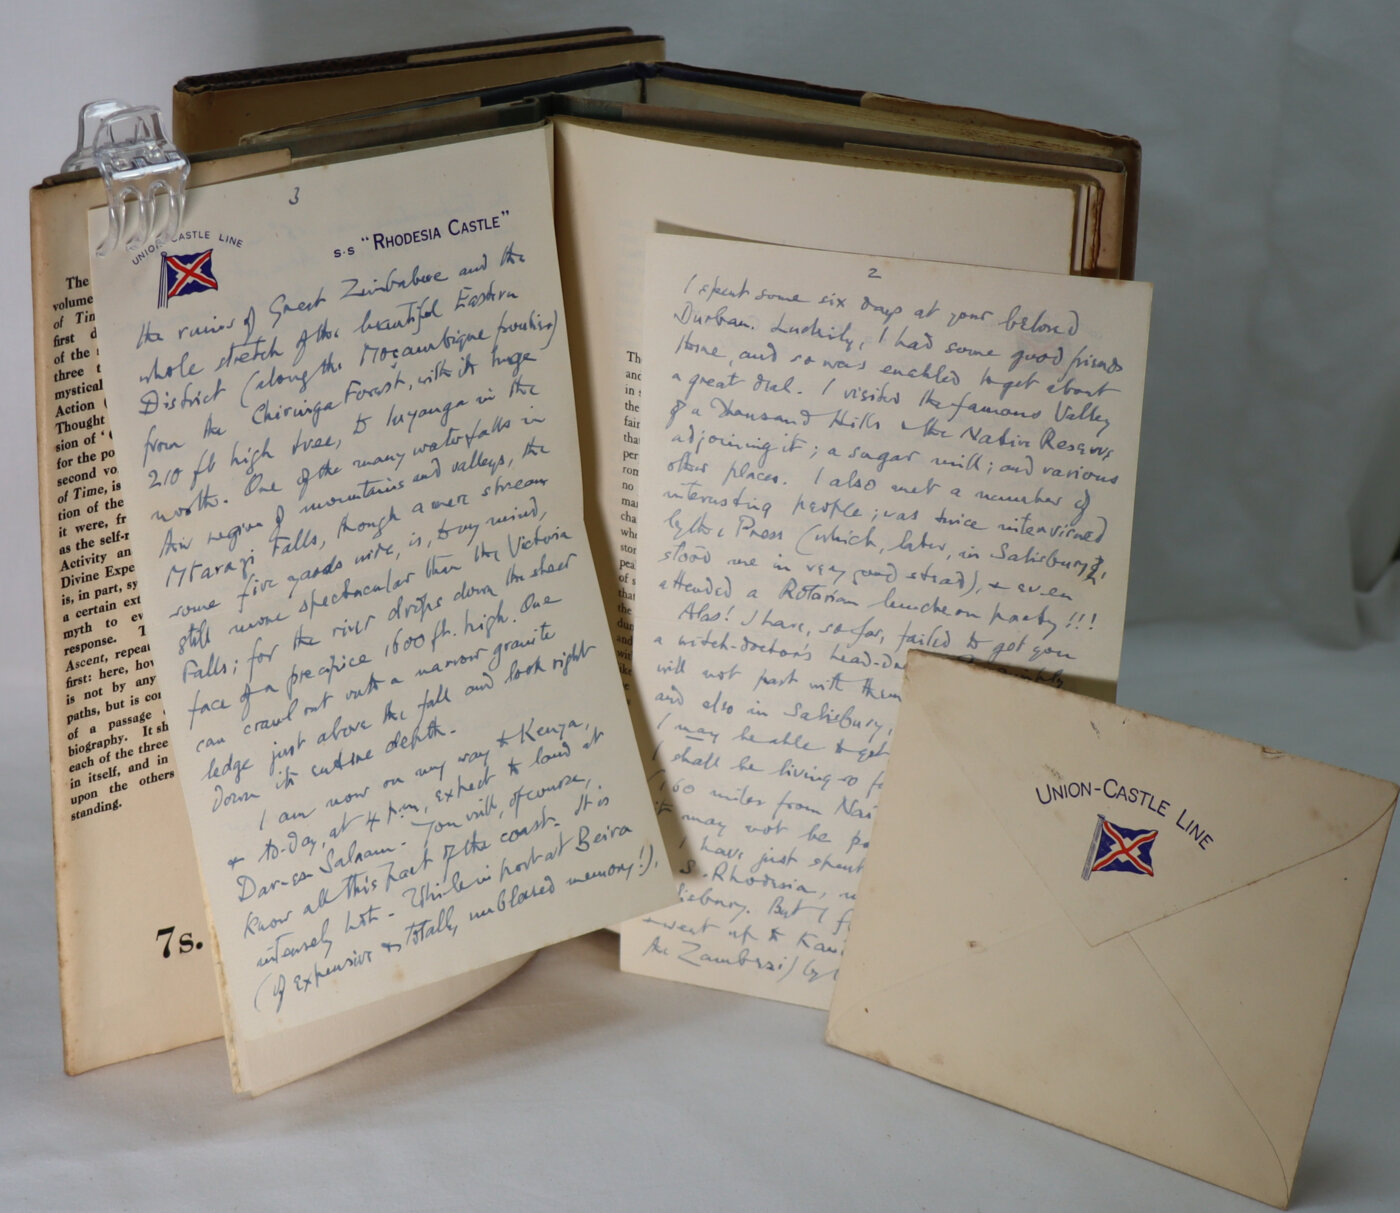 The
volume
of Tim
first d
of the
three t
mystical
Action
Thought
sion of '
for the po
second vo
of Time, is
tion of the
it were, fr
as the self-r
Activity an
Divine Expe
is, in part, sy
a certain ext
myth to ev
response. T
Ascent, repeat
first: here, how
is not by any
paths, but is con
of a passage
biography. It sh
each of the three
in itself, and in
upon the others
standing.
7s.
3
UNION-CASTLE LINE
S.S "RHODESIA CASTLE"
the ruins of Great Zimbabwe and the
whole stretch of the beautiful Eastern
District (along the Moçambique frontier)
from the Chiringa Forest, with its huge
210 ft high tree, to Inyanga in the
north. One of the many waterfalls in
this region of mountains and valleys, the
Mtarazi Falls, though a mere stream
some five yards wide, is, to my mind,
still more spectacular than the Victoria
Falls; for the river drops down the sheer
face of a precipice 1600 ft. high. One
can crawl out onto a narrow granite
ledge just above the fall and look right
down its entire depth.
I am now on my way to Kenya,
& to-day, at 4 p.m, expect to land at
Dar-es Salaam. You will, of course,
know all this part of the coast. It is
intensely hot. While in port at Beira
(of expensive & totally unblessed memory!),
2
I spent some six days at your beloved
Durban. Luckily, I had some good friends
there, and so was enabled to get about
a great deal. I visited the famous Valley
of a Thousand Hills & the Native Reserve
adjoining it; a sugar mill; and various
other places. I also met a number of
interesting people; was twice interviewed
by the Press (which, later, in Salisbury,
stood me in very good stead), & even
attended a Rotarian luncheon party!!!
Alas! I have, so far, failed to get you
a witch-doctor's head-d
will not part with them
and also in Salisbury,
I may be able to get
I shall be living so f
(160 miles from Nai
it may not be po
I have just spent
S. Rhodesia,
isbury. But I f
& went up to Kari
the Zambezi) by
Th
and
in
the
fair
tha
per
rom
no
ma
cha
wh
stor
pea
of s
that
the
dur
and
wi
like
UNION-CASTLE LINE